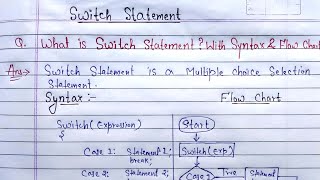 Switch Statement
Q. What is Switch Statement? With Syntax & Flow Chart
Ans→ Switch Statement is a Multiple choice Selection
Statement.
Syntax :- Flow Chart
Switch (Expression) Start
{
Case 1: Statement 1; Switch (Exp)
break;
Case 2: Statement 2; Case True Statement